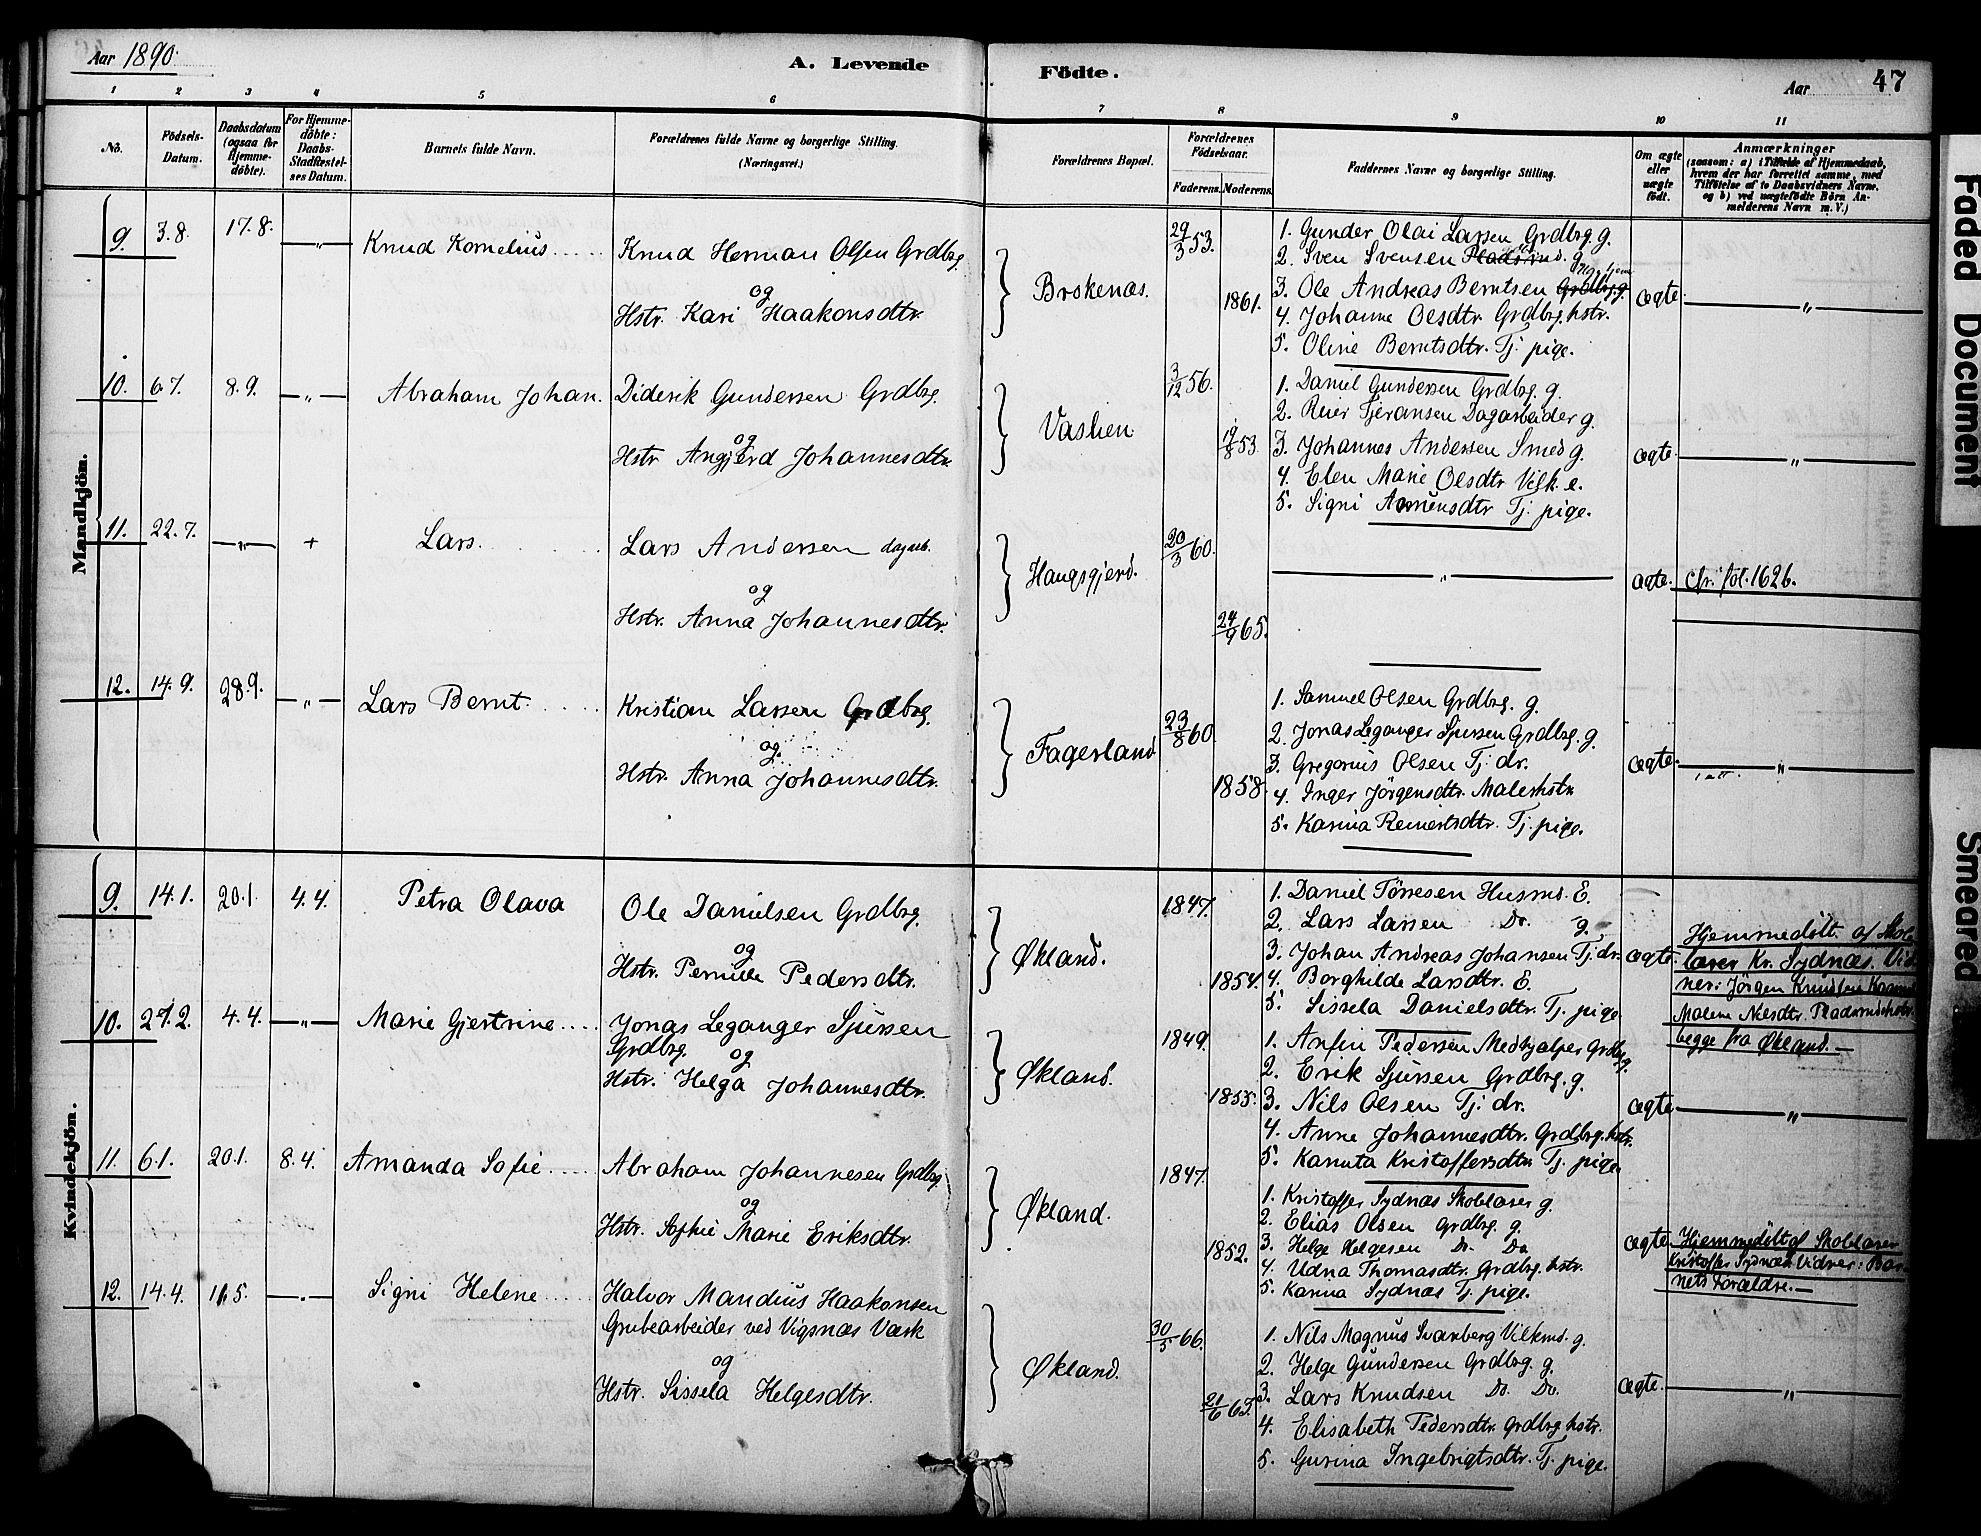 Aar 1890.
A. Levende Födte.
Aar
47
1 2 3 4 5 6 7 8 9 10 11
No.
Födsels-Datum.
Daabsdatum (ogsaa for Hjemme-döbte).
For Hjemme-döbte: Daabs-Stadfæstel-ses Datum.
Barnets fulde Navn.
Forældrenes fulde Navne og borgerlige Stilling.
(Næringsvei.)
Forældrenes Bopæl.
Forældrenes Födselsaar.
Faderens. Moderens.
Faddernes Navne og borgerlige Stilling.
Om ægte eller uægte födt.
Anmærkninger
(saasom: a) i Tilfælde af Hjemmedaab,
hvem der har forrettet samme, med
Tilföielse af to Daabsvidners Navne.
og b) ved uægtefödte Börn An-
melderens Navn m. V.)
Mandkjön.
9. 3.8. 17.8. — " — Knud Kornelius Knud Herman Olsen Grdbrg.
og
Hstr. Kari Haakonsdtr.
Brokenæs.
29/3 53.
1861.
1. Gunder Olai Larsen Grdbrg. g.
2. Sven Svensen g.
3. Ole Andreas Berntsen Grdbrg. g.
4. Johanne Olsdtr. Grdbrg. hstr.
5. Oline Berntsdtr. Tj. pige.
ægte — " —
10. 6.7. 8.9. — " — Abraham Johan. Diderik Gundersen Grdbrg.
og
Hstr. Angjerd Johannesdtr.
Vaslien
3/12 56.
19/8 53.
1. Daniel Gundersen Grdbrg. g.
2. Reier Tjeransen Dagarbeider g.
3. Johannes Andersen Smed g.
4. Elen Marie Olsdtr. e.
5. Signi Tj. pige.
ægte — " —
11. 22.7. — " — + Lars. Lars Andersen dagarb.
og
Hstr. Anna Johannesdtr.
Haugsgjerd.
20/3 60.
24/9 65.
— " —
ægte. cfr.föl. 1626.
12. 14.9. 28.9. — " — Lars Bernt. Kristian Larsen Grdbrg.
og
Hstr. Anna Johannesdtr.
Fagerland
23/8 60.
1858.
1. Samuel Olsen Grdbrg. g.
2. Jonas Leganger Sjursen Grdbrg. g.
3. Gregorius Olsen Tj. dr.
4. Inger Jörgensdtr. Malerhstr.
5. Karina Reinertsdtr. Tj. pige.
ægte — " —
Kvindekjön.
9. 14.1. 20.1. 4.4. Petra Olava Ole Danielsen Grdbrg.
og
Hstr. Pernille Pedersdtr.
Økland.
1847.
1854.
1. Daniel Tönesen Husmd. E.
2. Lars Larsen Do. g.
3. Johan Andreas Johansen Tj. dr.
4. Borghilde Larsdtr. E.
5. Sissela Danielsdtr. Tj. pige
ægte.
Hjemmedöbt af Skol-
lærer Kr. Sydnæs. Vid-
ner: Jörgen Knudsen
Malene Nilsdtr. Pladsmdshstr.
begge fra Økland. —
10. 27.2. 4.4. — " — Marie Gjertrine Jonas Leganger Sjursen
Grdbrg. og
Hstr. Helga Johannesdtr.
Økland.
1849.
1855.
1. Anfin Pedersen Medhjælper Grdbrg.
2. Erik Sjursen Grdbrg. g.
3. Nils Olsen Tj. dr.
4. Anne Johannesdtr. Grdbrg. hstr.
5. Kanuta Kristoffersdtr. Tj. pige
ægte — " —
11. 6.1. 20.1. 8.4. Amanda Sofie Abraham Johannesen Grdbrg.
og
Hstr. Sophie Marie Eriksdtr.
Økland.
1847.
1852.
1. Kristoffer Sydnæs Skolelærer g.
2. Elias Olsen Grdbrg. g.
3. Helge Helgesen Do. Do.
4. Udna Thomasdtr. Grdbrg. hstr.
5. Kanna Sydnæs Tj. pige.
ægte Hjemmedöbt af Skolelærer
Kristoffer Sydnæs Vidner: Bar-
nets Forældre. —
12. 14.4. 11.5. — " — Signi Helene Halvor Mandius Haakonsen
Grubearbeider ved Vigsnæs Værk
og
Hstr. Sissela Helgesdtr.
Økland.
30/5 66.
21/6 63.
1. Nils Magnus Svanberg g.
2. Helge Gundersen Grdbrg. g.
3. Lars Knudsen Do. Do.
4. Elisabeth Pedersdtr. Grdbrg hstr.
5. Gurina Ingebrigtsdtr. Tj. pige.
ægte. — " —
Faded Document
Smeared